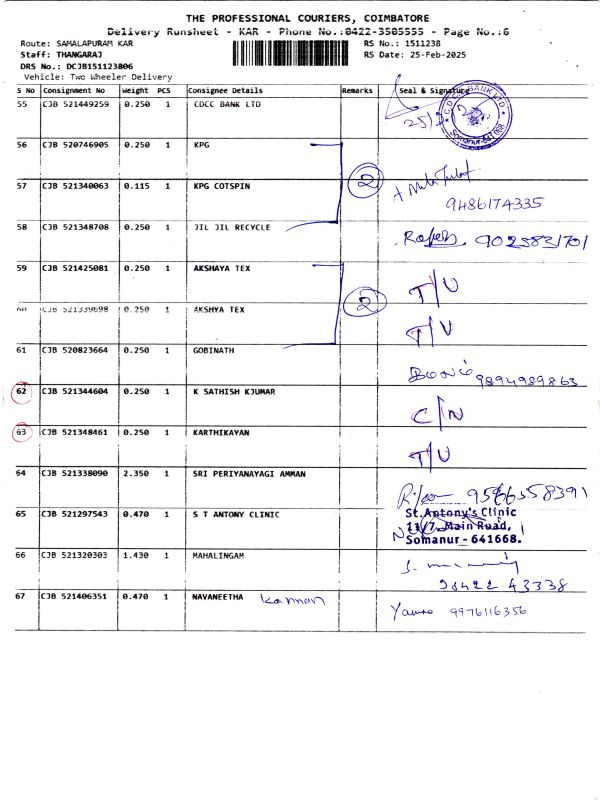 THE PROFESSIONAL COURIERS, COIMBATORE
Delivery Runsheet - KAR - Phone No.:0422-3505555 - Page No.:6
Route: SAMALAPURAM KAR
RS No.: 1511238
Staff: THANGARAJ
RS Date: 25-Feb-2025
DRS No.: DCJB151123806
Vehicle: Two Wheeler Delivery
S No Consignment No Weight PCS Consignee Details Remarks Seal & Signature
55 CJB 521449259 0.250 1 CDCC BANK LTD
Somanur-641 668
56 CJB 520746905 0.250 1 KPG
2
57 CJB 521340063 0.115 1 KPG COTSPIN
9486174335
58 CJB 521348708 0.250 1 JIL JIL RECYCLE
9025831701
59 CJB 521425081 0.250 1 AKSHAYA TEX
T/U
2
60 CJB 521339698 0.250 1 AKSHYA TEX
T/U
61 CJB 520823664 0.250 1 GOBINATH
9894989863
62 CJB 521344604 0.250 1 K SATHISH KJUMAR
C/N
63 CJB 521348461 0.250 1 KARTHIKAYAN
T/U
64 CJB 521338090 2.350 1 SRI PERIYANAYAGI AMMAN
9566558391
65 CJB 521297543 0.470 1 S T ANTONY CLINIC
St.Antony's Clinic
11/7, Main Road,
Somanur - 641668.
66 CJB 521320303 1.430 1 MAHALINGAM
98422 43338
67 CJB 521406351 0.470 1 NAVANEETHA Kannan
9976116356